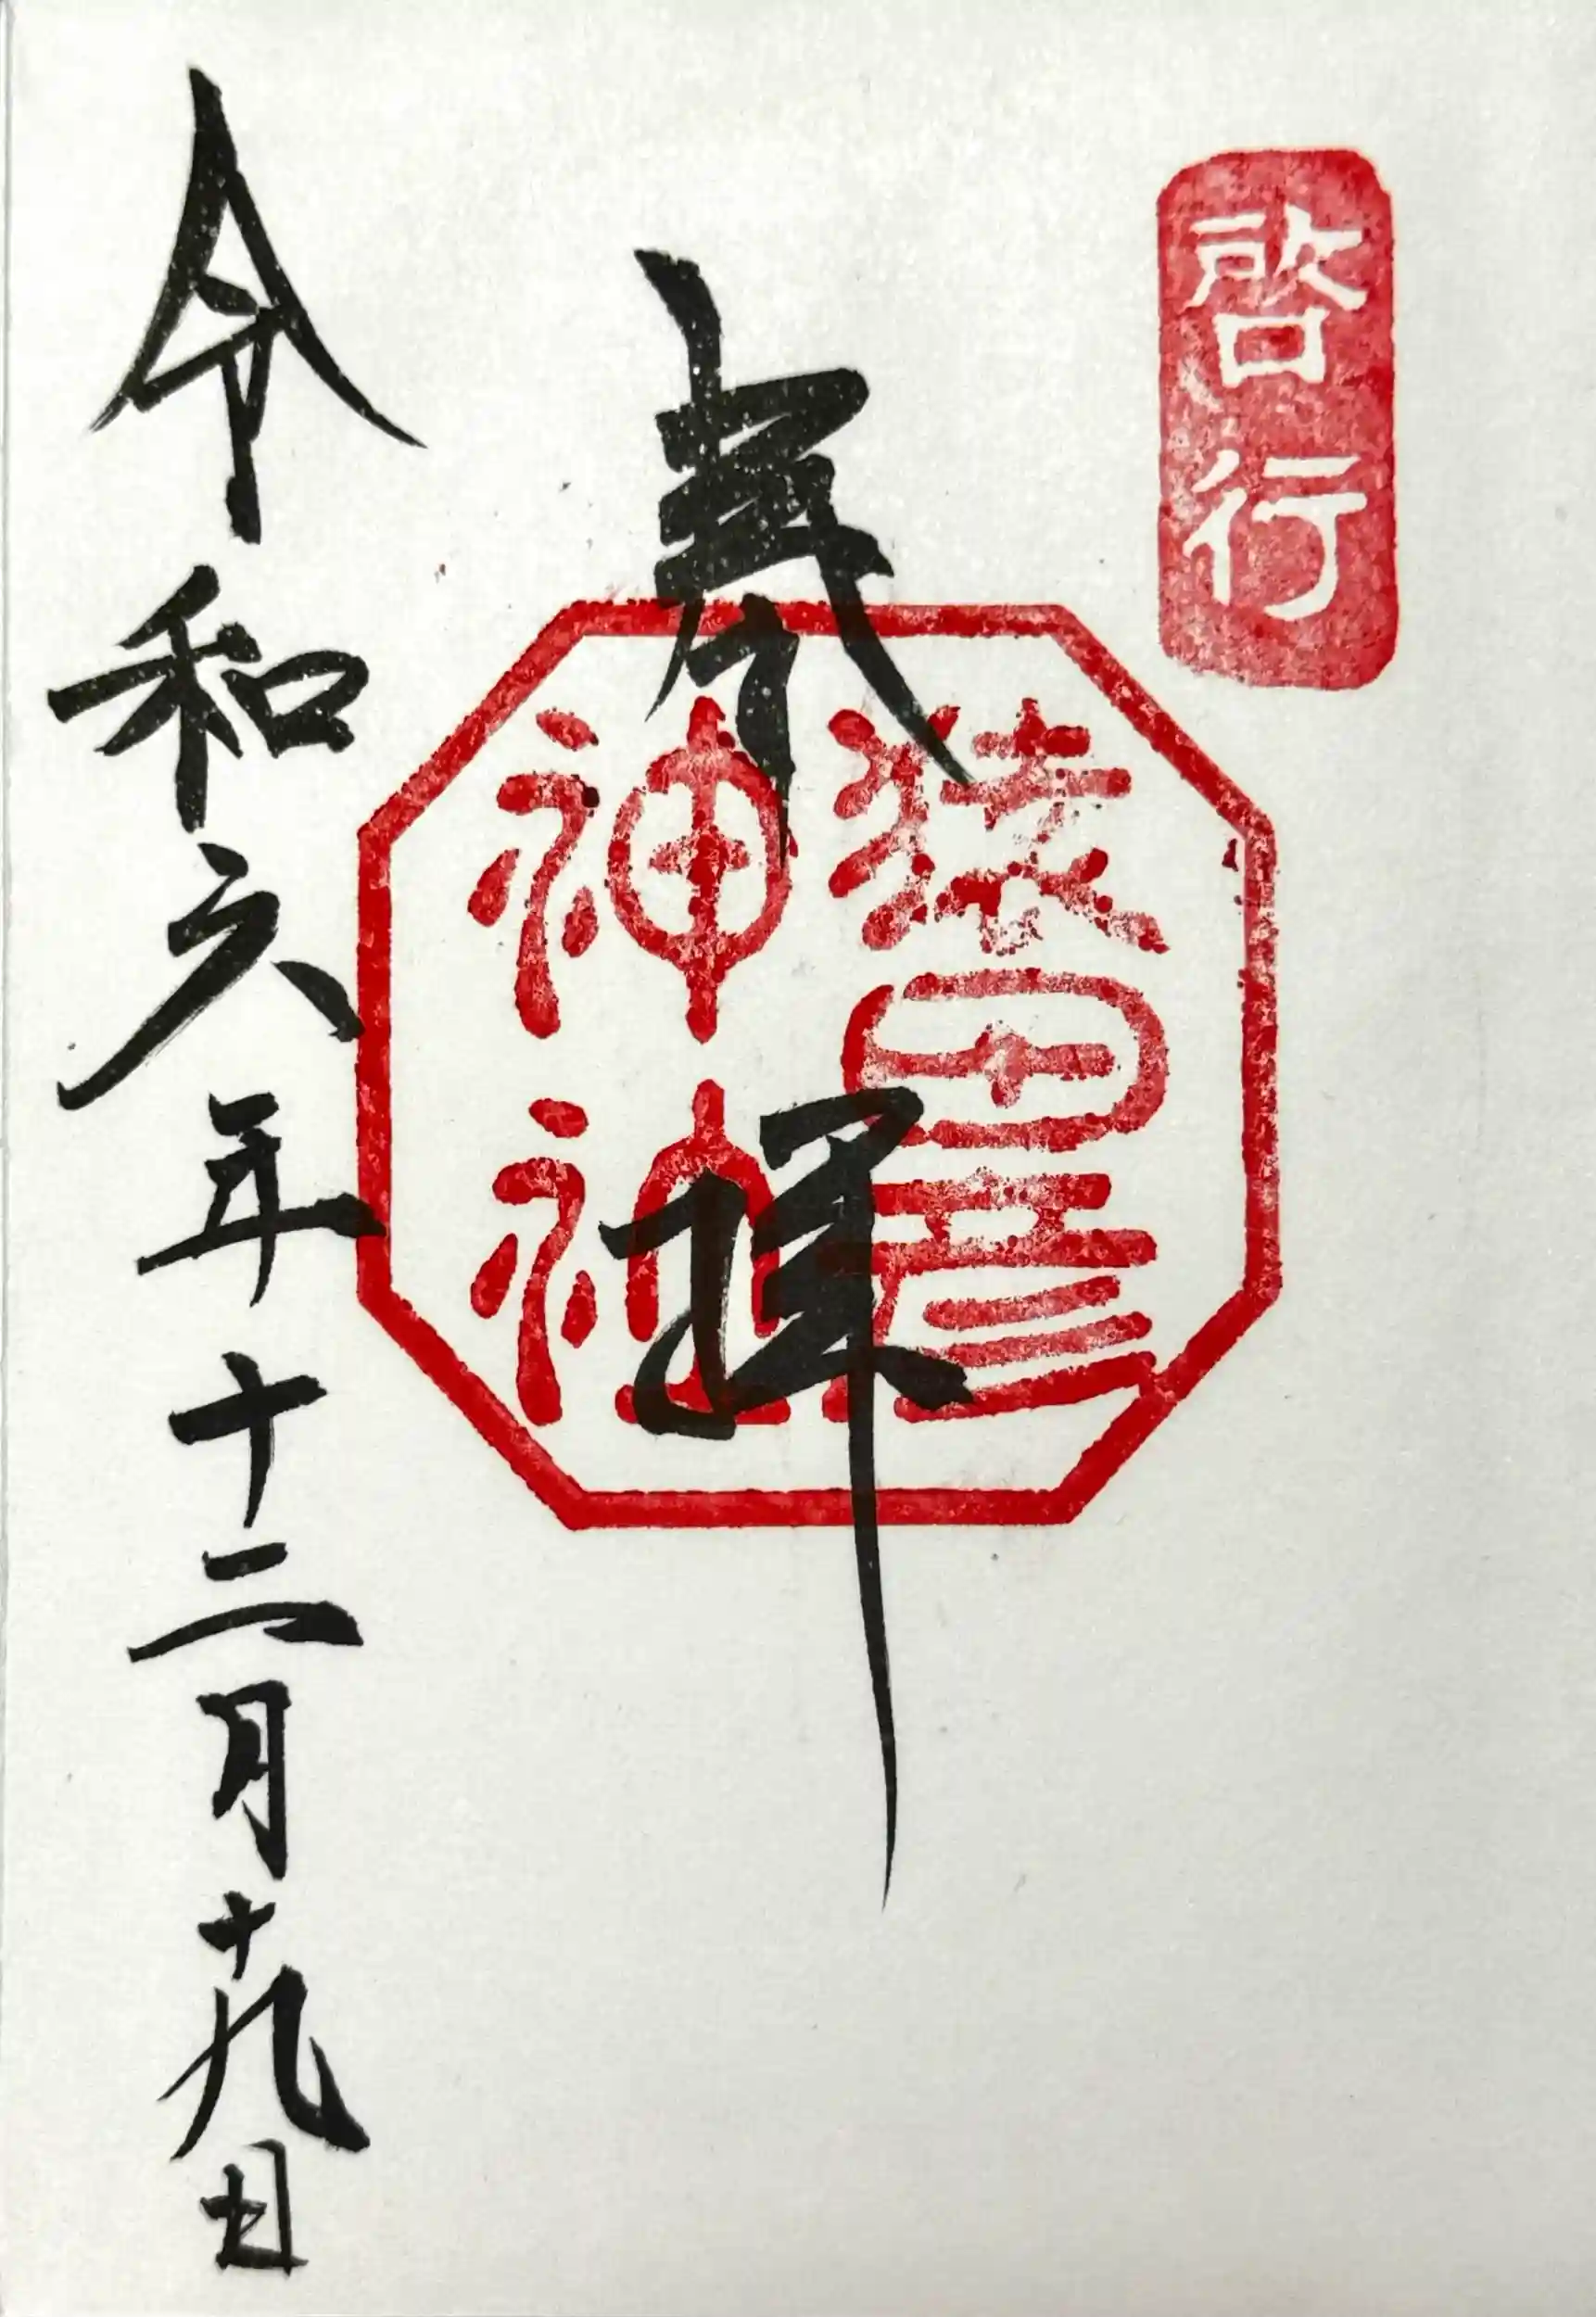 啓行
奉拝
猿田彦
神社
令和六年十二月十九日